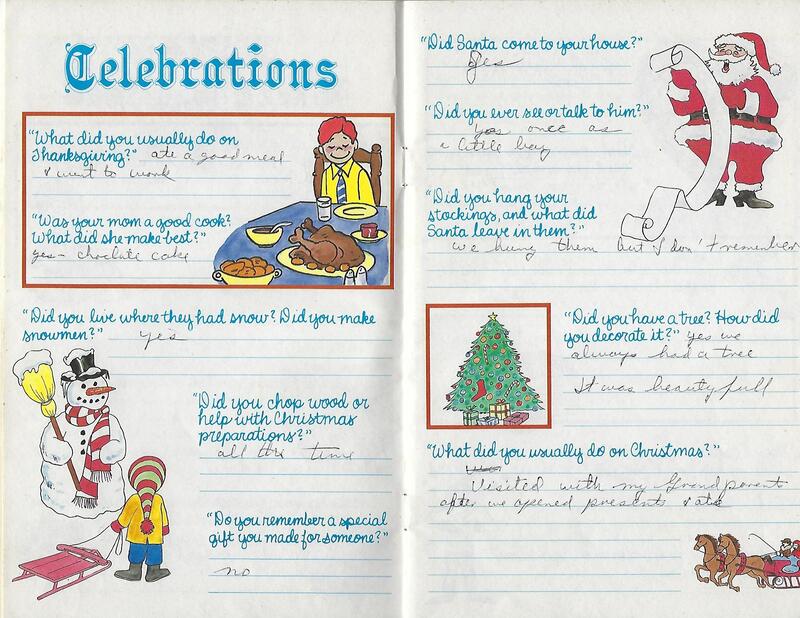 Celebrations
"What did you usually do on
Thanksgiving?" ate a good meal
& went to work
"Was your mom a good cook?
What did she make best?"
yes - choclate cake
"Did you live where they had snow? Did you make
snowmen?" yes
"Did you chop wood or
help with Christmas
preparations?"
all the time
"Do you remember a special
gift you made for someone?"
no
"Did Santa come to your house?"
Yes
"Did you ever see or talk to him?"
Yes once as
a little boy
"Did you hang your
stockings, and what did
Santa leave in them?"
we hung them but I don't remember
"Did you have a tree? How did
you decorate it?" yes we
always had a tree
It was beautyfull
"What did you usually do on Christmas?"
Visited with my Grandparent
after we opened presents & ate